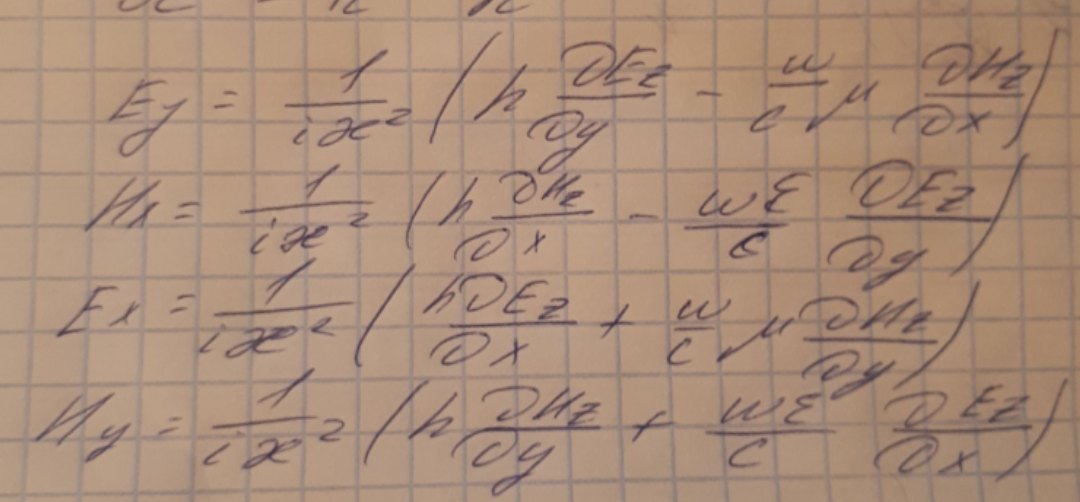 Ey = 1/(iæ²) (h ∂Ez/∂y - ω/c μ ∂Hz/∂x)
Hx = 1/(iæ²) (h ∂Hz/∂x - ωε/c ∂Ez/∂y)
Ex = 1/(iæ²) (h∂Ez/∂x + ω/c μ ∂Hz/∂y)
Hy = 1/(iæ²) (h ∂Hz/∂y + ωε/c ∂Ez/∂x)